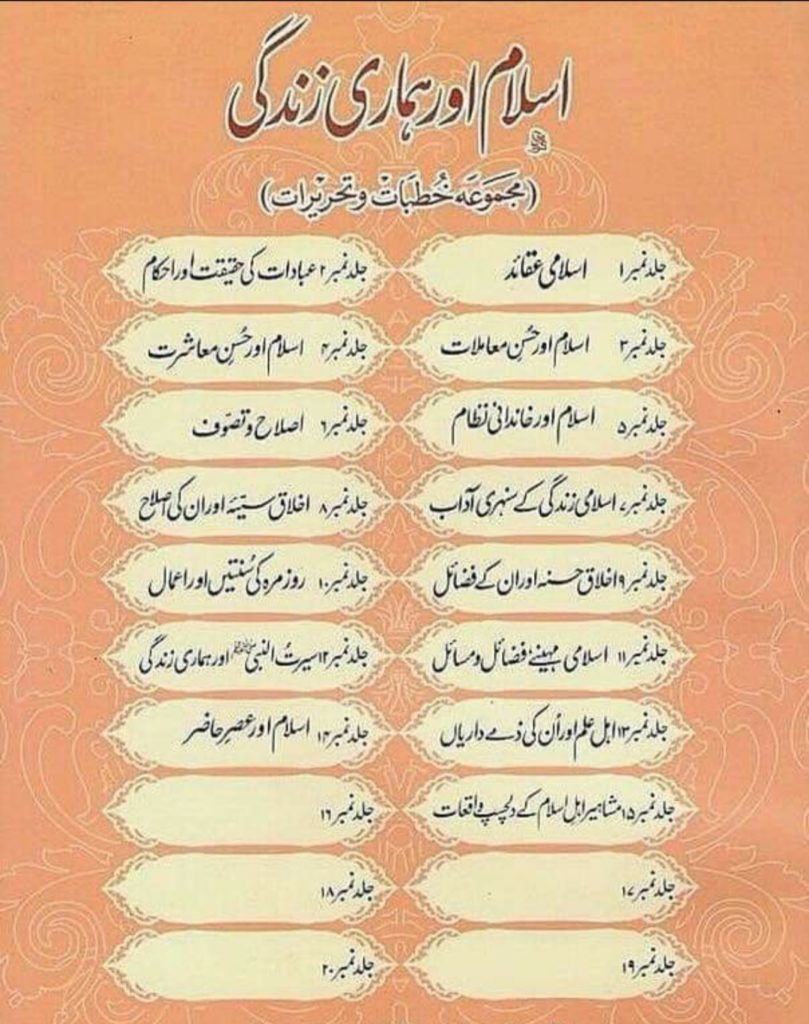 اسلام اور ہماری زندگی
(مجموعہ خُطبَات و تحریرات)
جلد نمبر ۱ اسلامی عقائد
جلد نمبر ۲ عبادات کی حقیقت اور احکام
جلد نمبر ۳ اسلام اور حُسنِ معاملات
جلد نمبر ۴ اسلام اور حُسنِ معاشرت
جلد نمبر ۵ اسلام اور خاندانی نظام
جلد نمبر ۶ اصلاح و تصوّف
جلد نمبر ۷ اسلامی زندگی کے سنہری آداب
جلد نمبر ۸ اخلاق سیّئہ اور ان کی اصلاح
جلد نمبر ۹ اخلاق حسنہ اور ان کے فضائل
جلد نمبر ۱۰ روزمرہ کی سُنتیں اور اعمال
جلد نمبر ۱۱ اسلامی مہینے فضائل و مسائل
جلد نمبر ۱۲ سیرتُ النبی ﷺ اور ہماری زندگی
جلد نمبر ۱۳ اہل علم اور اُن کی ذمے داریاں
جلد نمبر ۱۴ اسلام اور عصرِ حاضر
جلد نمبر ۱۵ مشاہیر اہل اسلام کے دلچسپ واقعات
جلد نمبر ۱۶
جلد نمبر ۱۷
جلد نمبر ۱۸
جلد نمبر ۱۹
جلد نمبر ۲۰